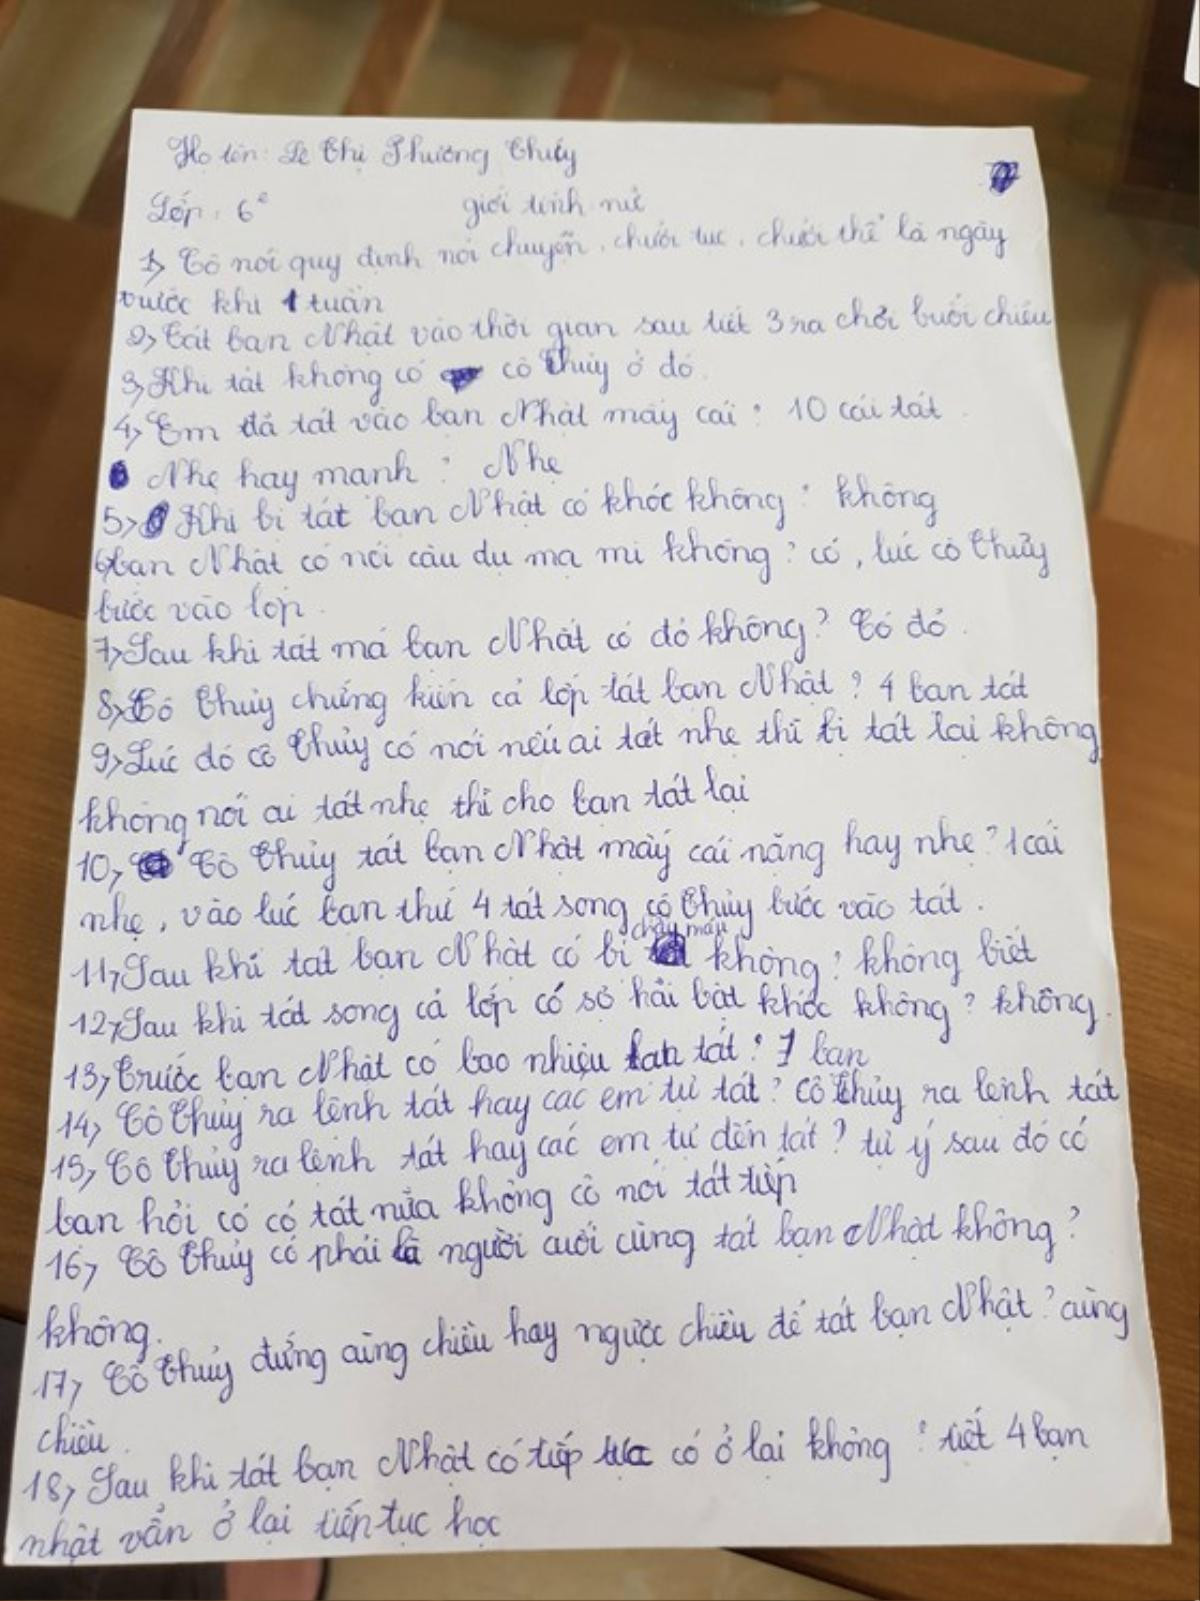 Họ tên: Lê Thị Phương Thuý
Lớp: 6² giới tính nử
1, Cô nói quy định nói chuyện, chưới tục, chưới thề là ngày
trước khi 1 tuần
2, Tát bạn Nhật vào thời gian sau tiết 3 ra chơi buổi chiều
3, Khi tát không có cô Thuỷ ở đó.
4, Em đã tát vào bạn Nhật mấy cái? 10 cái tát
Nhẹ hay mạnh? Nhẹ
5, Khi bị tát bạn Nhật có khóc không? không
6, bạn Nhật có nói câu dụ mạ mi không? có, lúc cô Thuỷ
bước vào lớp.
7, Sau khi tát má bạn Nhất có đỏ không? Có đỏ.
8, Cô Thuỷ chứng kiến cả lớp tát bạn Nhật? 4 bạn tát
9, Lúc đó cô Thủy có nói nếu ai tát nhẹ thì bị tát lại không
không nói ai tát nhẹ thì cho bạn tát lại
10, Cô Thuỷ tát bạn Nhật mấy cái nặng hay nhẹ? 1 cái
nhẹ, vào lúc bạn thứ 4 tát song cô Thuỷ bước vào tát.
11, Sau khi tát bạn Nhật có bị chảy máu không? không biết
12, Sau khi tát song cả lớp có sợ hải bật khóc không? không.
13, Trước bạn Nhật có bao nhiêu bạn tát? 7 bạn
14, Cô Thuỷ ra lệnh tát hay các em tự tát? Cô Thuỷ ra lệnh tát
15, Cô Thuỷ ra lệnh tát hay các em tự đến tát? tự ý sau đó có
bạn hỏi có có tát nửa không cô nói tát tiếp
16, Cô Thuỷ có phải là người cuối cùng tát bạn Nhật không?
không.
17, Cô Thuỷ đứng cùng chiều hay ngược chiều để tát bạn Nhật? cùng
chiều.
18, Sau khi tát bạn Nhật có tiếp tục có ở lại không? tiết 4 bạn
nhật vẫn ở lại tiến tục học